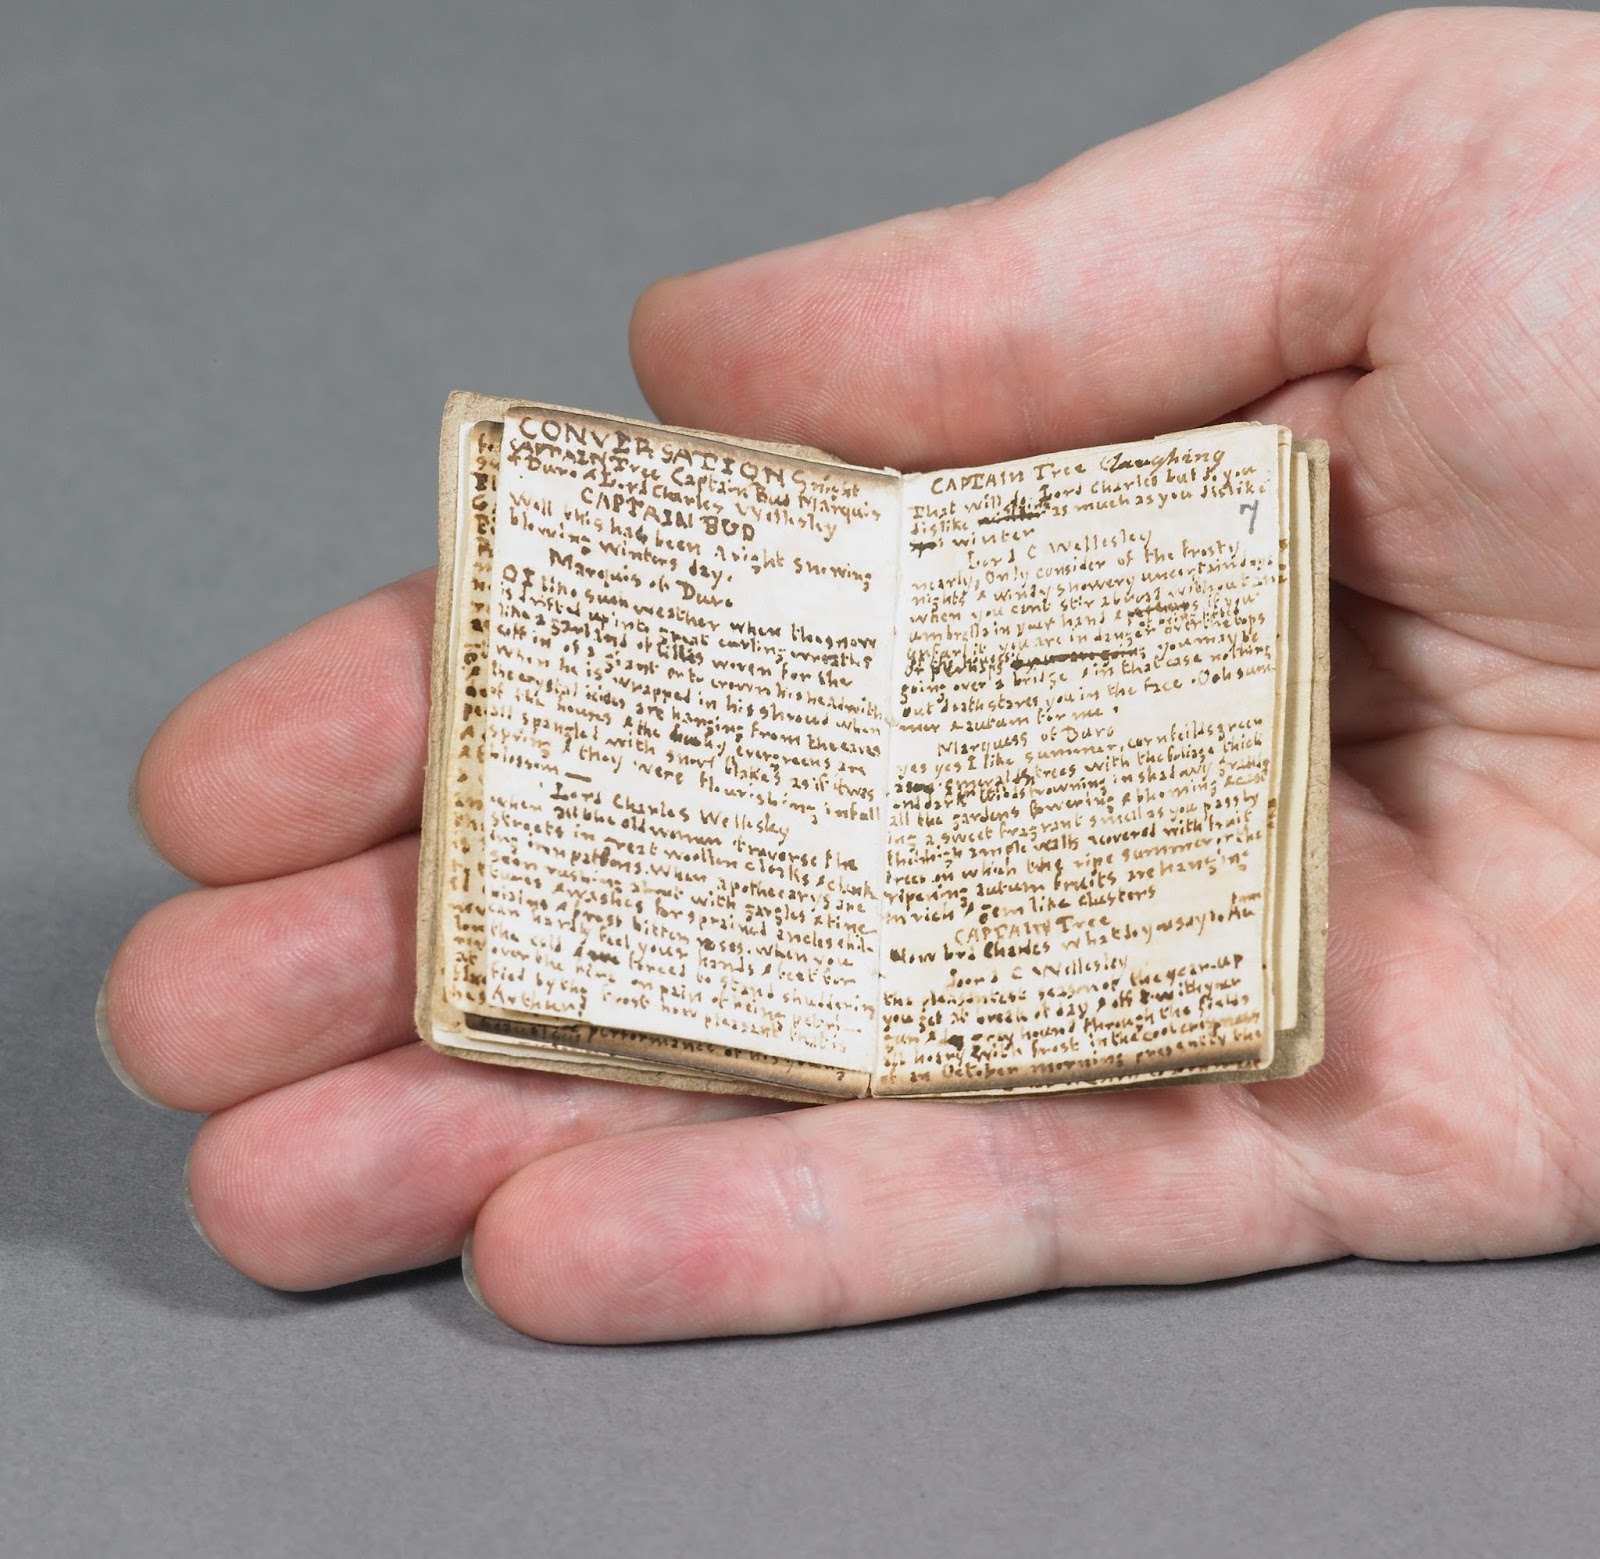 CONVERSATIONS
CAPTAIN Tree Captain Bud Marquis
of Duro & Lord Charles Wellesley
CAPTAIN BUD
Well this had been a right snowing
blowing winters day.
Marquis of Duro
O I like such weather when the snow
is drifted up into great curling wreaths
like a garland of lillies woven for the
coffin of a giant or to crown his head with
when he is wrapped in his shroud when
the crystal icicles are hanging from the eaves
of the houses & the bushy evergreens are
all spangled with snow flakes as if it was
spring & they were flourishing in full
blossom —
Lord Charles Wellesley
when all the old women traverse the
streets in great woollen cloaks & clank
ing iron pattons. When apothecarys are
seen rushing about with gargles &
& washes for sprained ancles chil-
blains & frost bitten noses. When you
can hardly feel your hands & feet for
the cold & are forced to stand shuddering
over the fire on pain of being petri-
fied by the frost how pleasant that is
Arthur?
performance of
CAPTAIN Tree laughing
That will do Lord Charles but do you
dislike as much as you dislike
winter
7
Lord C Wellesley
nearly, Only consider of the frosty
nights & windy showery uncertain days
when you cant stir abroad without an
umbrella in your hand & if you
unfurl it you are in danger of being lifted
over the tops
of you may be
going over a bridge & in that case nothing
but death stares you in the face. Ooh sum-
mer & autum for me!
Marquess of Duro
yes yes I like summer, cornfeilds green
as emeralds trees with the foliage thick
and dark woods frowning in shadowy
all the gardens flowering & blooming &
ing a sweet fragrant smell as you pass by
through ample walls covered with fruit
trees on which the ripe summer or the
ripening autum fruits are hanging
in rich & gem like clusters
CAPTAIN Tree
Now Lord Charles what do you say to Au
tumn
Lord C Wellesley
the pleasentest season of the year. up
you get at break of day & off with your
gun & grey hound through the fields
all hoary with frost in the cool crispness
of an October morning presently the